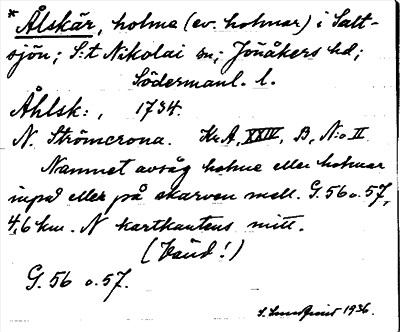 * Ålskär, holme (ev. holmar) i Salt-
sjön; S:t Nikolai sn; Jönåkers hd;
Södermanl. l.
Åhlsk:, 1734.
N. Strömcrona. Kr.A, XXIV, B, N:o II
Namnet avsåg holme eller holmar
inpå eller på skarven mell. G. 56 o. 57,
4,6 km. N kartkantens mitt.
(Vänd!)
G. 56 o. 57.
1936.